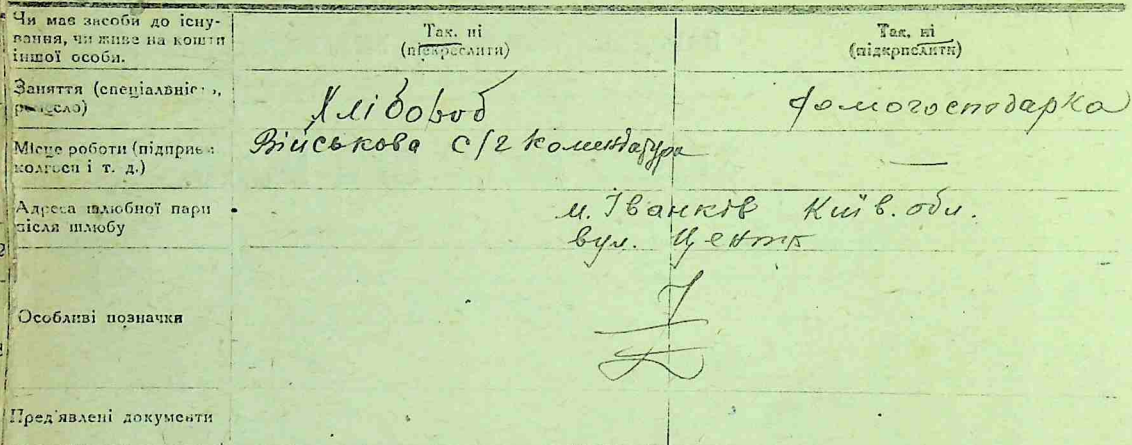 Чи має засоби до існу-
вання, чи живе на кошти
іншої особи.
Так, ні
(підкреслити)
Так, ні
(підкрпслити)
Заняття (спеціальніс
сло)
Хлібороб
Домогосподарка
Місце роботи (підприє
колгосп і т. д.)
Військова с/г комендатура
—
Адреса шлюбної пари
після шлюбу
м. Іванків Київ. обл.
вул. Центр
Особливі позначки
Пред'явлені документи